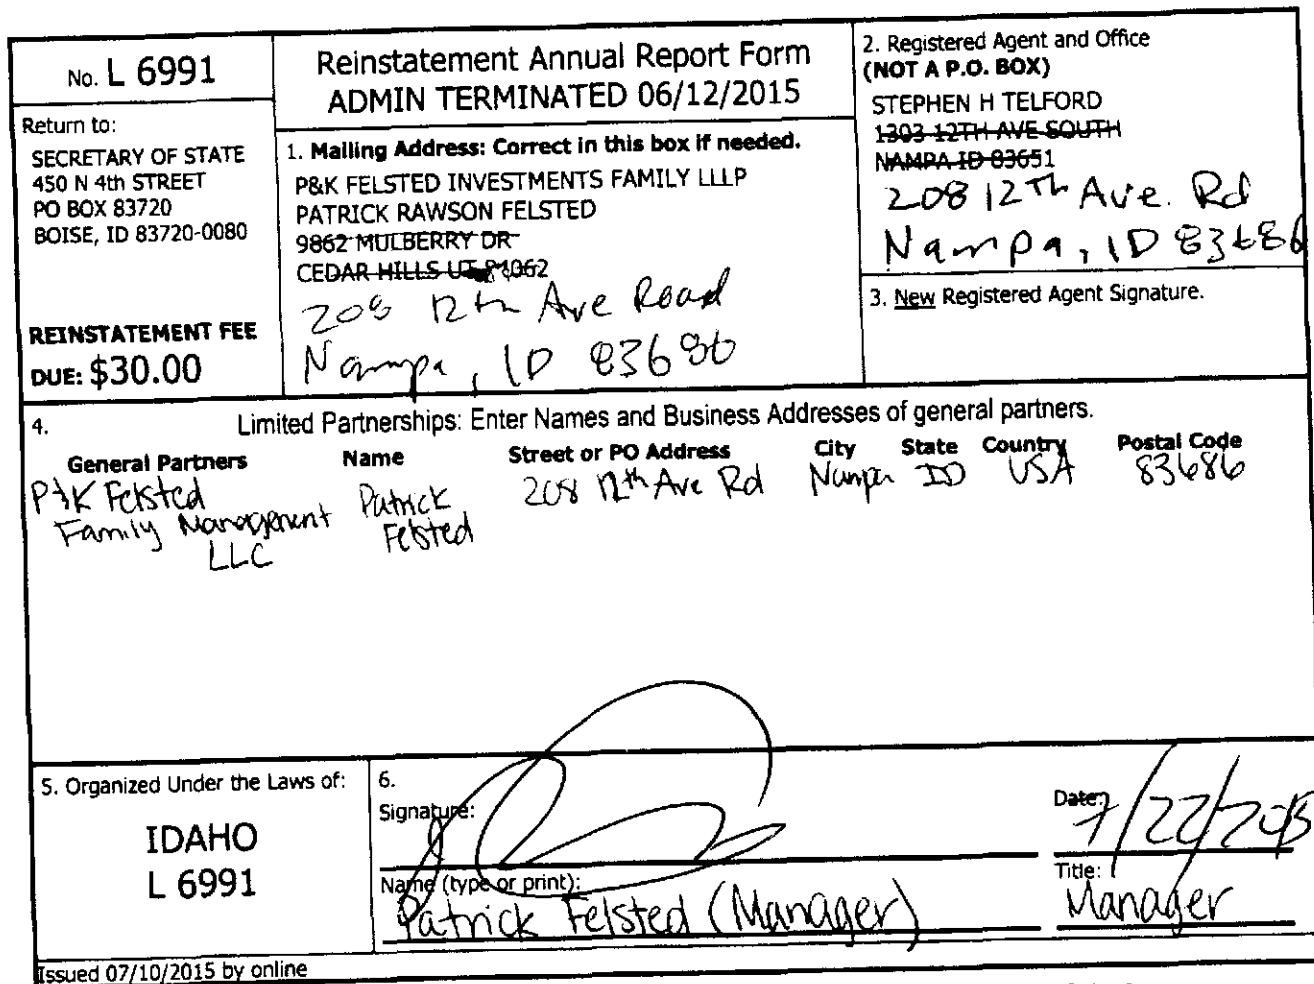 No. L 6991
Return to:
SECRETARY OF STATE
450 N 4th STREET
PO BOX 83720
BOISE, ID 83720-0080
REINSTATEMENT FEE
DUE: $30.00
Reinstatement Annual Report Form
ADMIN TERMINATED 06/12/2015
1. Mailing Address: Correct in this box if needed.
P&K FELSTED INVESTMENTS FAMILY LLLP
PATRICK RAWSON FELSTED
9862 MULBERRY DR
CEDAR HILLS UT 84062
208 12th Ave Road
Nampa, ID 83686
2. Registered Agent and Office
(NOT A P.O. BOX)
STEPHEN H TELFORD
1303 12TH AVE SOUTH
NAMPA ID 83651
208 12Th Ave. Rd
Nampa, ID 83686
3. New Registered Agent Signature.
4. Limited Partnerships: Enter Names and Business Addresses of general partners.
General Partners Name Street or PO Address City State Country Postal Code
P&K Felsted Patrick 208 12th Ave Rd Nampa ID USA 83686
Family Management Felsted
LLC
5. Organized Under the Laws of:
IDAHO
L 6991
6.
Signature:
Date: 7/22/2015
Name (type or print):
Patrick Felsted (Manager)
Title:
Manager
Issued 07/10/2015 by online